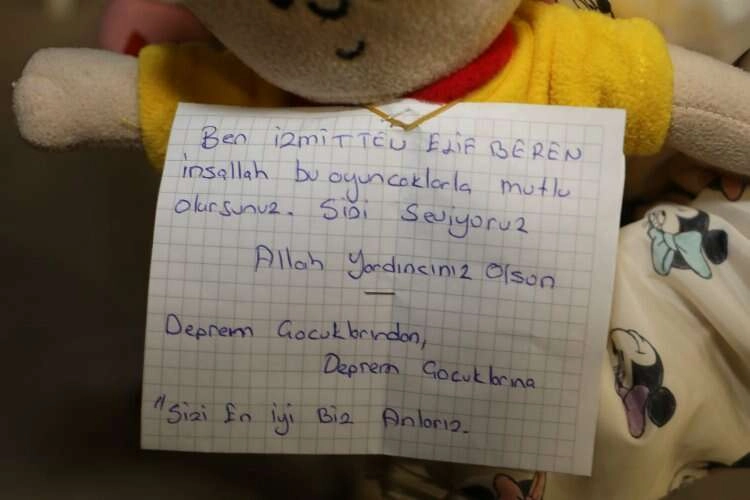 Ben izmitten ELİF BEREN
inşallah bu oyuncaklarla mutlu
olursunuz. Sizi Seviyoruz
Allah Yardımcınız Olsun
Deprem Çocuklarından,
Deprem Çocuklarına
"Sizi En iyi Biz Anlarız.